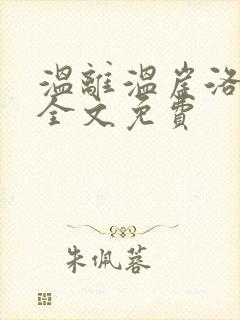 温離温崖洛
全文免費
朱佩蓉